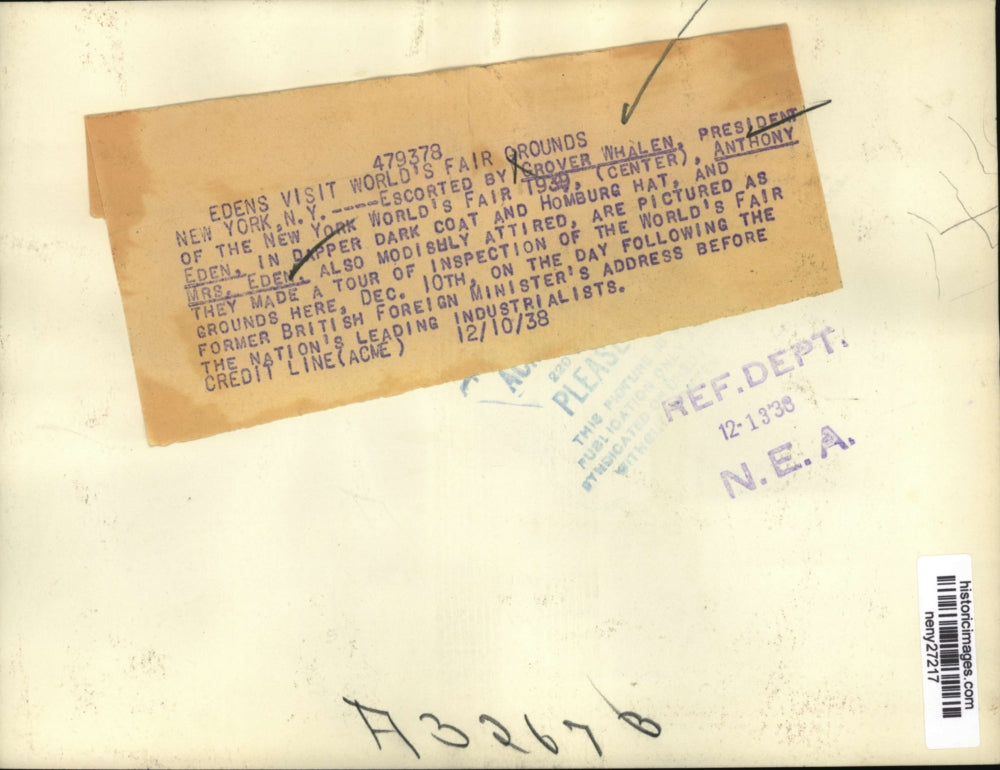 479378
EDENS VISIT WORLD'S FAIR GROUNDS
NEW YORK, N.Y.----ESCORTED BY GROVER WHALEN, PRESIDENT
OF THE NEW YORK WORLD'S FAIR 1939, (CENTER), ANTHONY
EDEN, IN DAPPER DARK COAT AND HOMBURG HAT, AND
MRS. EDEN, ALSO MODISHLY ATTIRED, ARE PICTURED AS
THEY MADE A TOUR OF INSPECTION OF THE WORLD'S FAIR
GROUNDS HERE, DEC. 10TH, ON THE DAY FOLLOWING THE
FORMER BRITISH FOREIGN MINISTER'S ADDRESS BEFORE
THE NATION'S LEADING INDUSTRIALISTS.
CREDIT LINE(ACME) 12/10/38
PLEASE
THIS PICTURE
PUBLICATION
SYNDICATED
REF. DEPT.
12-13'38
N.E.A.
historicimages.com
neny27217
A3267B